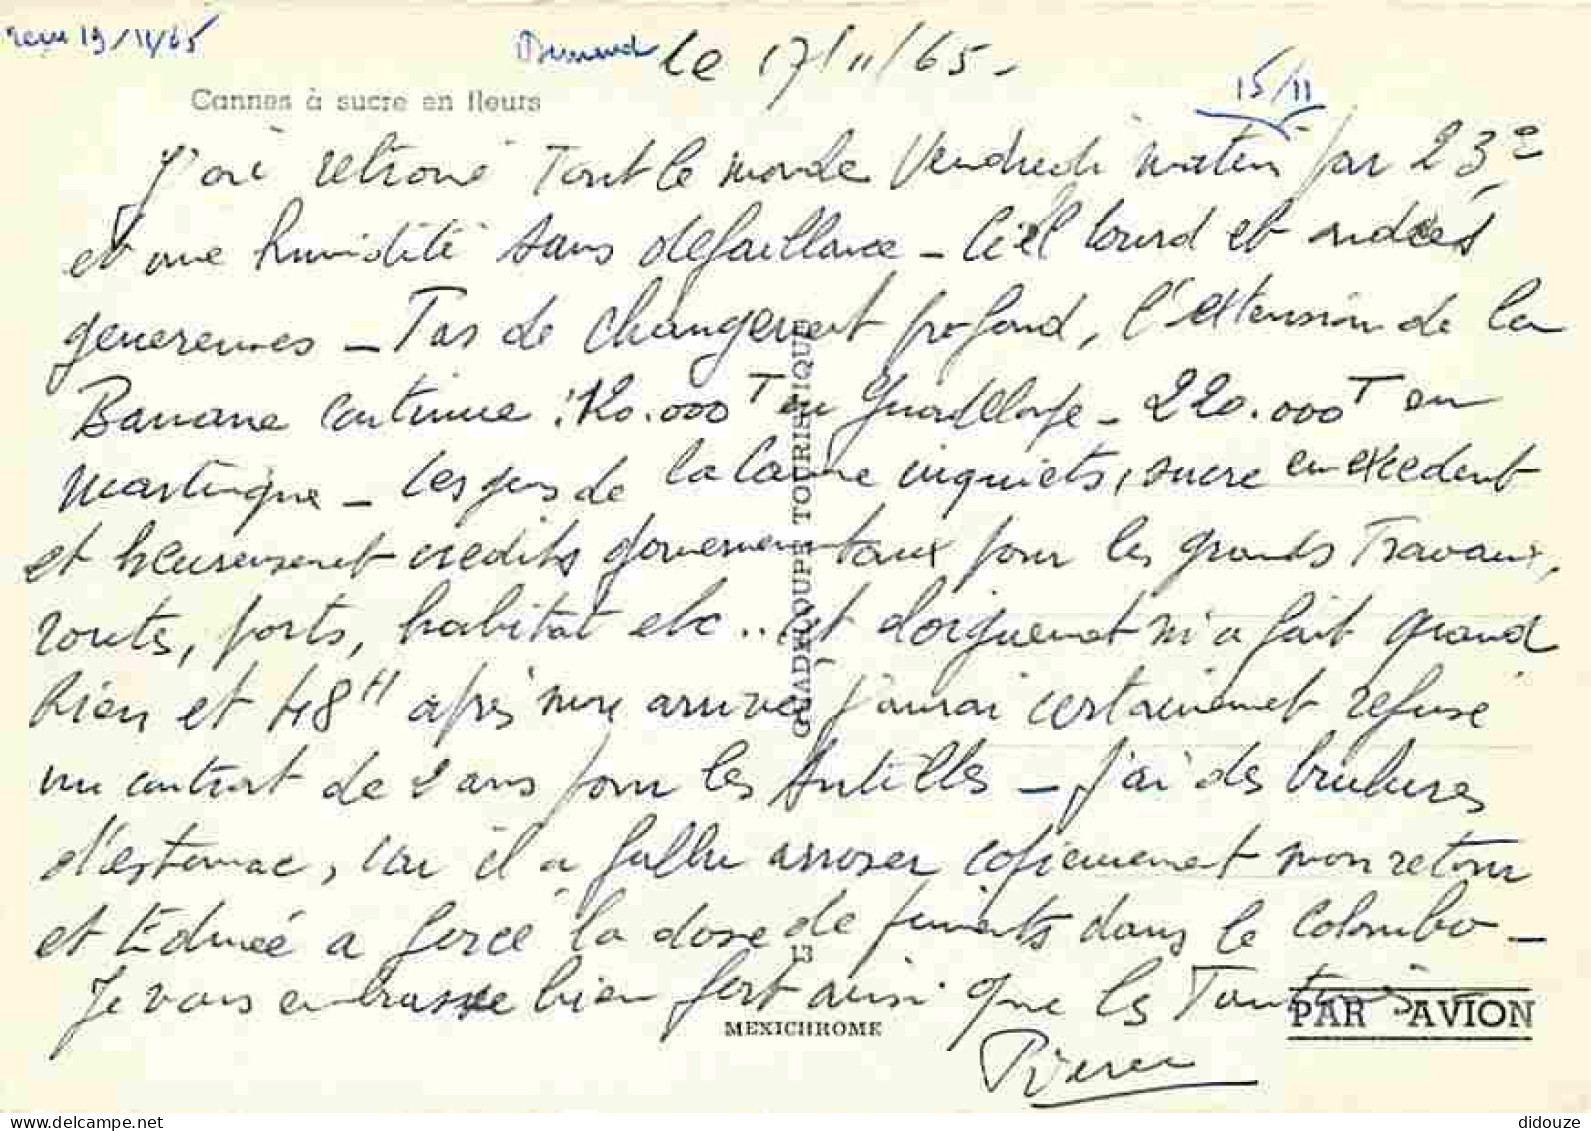 reçu 19/11/65
le 17/11/65 -
15/11
Cannes à sucre en fleurs
J'ai retrouvé tout le monde Vendredi matin par 23°
et une humidité sans défaillance - Ciel lourd et ondées
genereuses - Pas de changement profond, l'extension de la
Banane continue : 120.000 T en Guadeloupe - 220.000 T en
Martinique - Les gens de la Canne inquiets, sucre en excedent
et heureusement credits gouvernementaux pour les grands Travaux,
routes, ports, habitat etc.. et l'éloignement m'a fait grand
bien et 48 H après mon arrivée j'aurai certainement refusé
un contrat de 2 ans pour les Antilles - J'ai des brulures
d'estomac, car il a fallu arroser copieusement mon retour
et Edmée a forcé la dose de piments dans le Colombo -
Je vous embrasse bien fort ainsi que les Tantes
Pierre
GUADELOUPE TOURISTIQUE
13
MEXICHROME
PAR AVION
delcampe.net
didouze